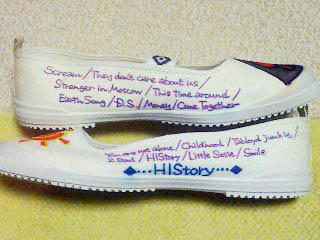 Scream / They don't care about us /
Stranger in Moscow / This time around /
Earth Song / D.S. / Money / Come Together
You are not alone / Childhood / Tabloyd Junkie /
2 Bad / HIStory / Little Susie / Smile
◆···HIStory···◆